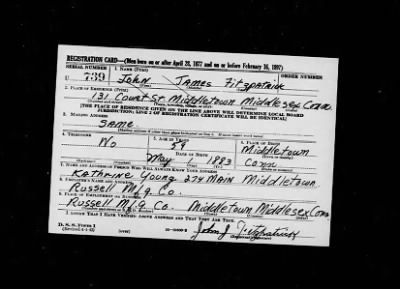 REGISTRATION CARD—(Men born on or after April 28, 1877 and on or before February 16, 1897)
SERIAL NUMBER 1. NAME (Print) ORDER NUMBER
U 739 John James Fitzpatrick
2. PLACE OF RESIDENCE (Print)
131 Court St. Middletown Middlesex Conn
[THE PLACE OF RESIDENCE GIVEN ON THE LINE ABOVE WILL DETERMINE LOCAL BOARD
JURISDICTION; LINE 2 OF REGISTRATION CERTIFICATE WILL BE IDENTICAL]
3. MAILING ADDRESS
SAME
4. TELEPHONE 5. AGE IN YEARS 6. PLACE OF BIRTH
No 59 Middletown
DATE OF BIRTH
May 1883 Conn
7. NAME AND ADDRESS OF PERSON WHO WILL ALWAYS KNOW YOUR ADDRESS
Kathrine Young 274 Main Middletown
8. EMPLOYER'S NAME AND ADDRESS
Russell Mfg. Co.
9. PLACE OF EMPLOYMENT OR BUSINESS
Russell Mfg Co. Middletown Middlesex Conn
I AFFIRM THAT I HAVE VERIFIED ABOVE ANSWERS AND THAT THEY ARE TRUE.
D. S. S. Form 1
John J Fitzpatrick